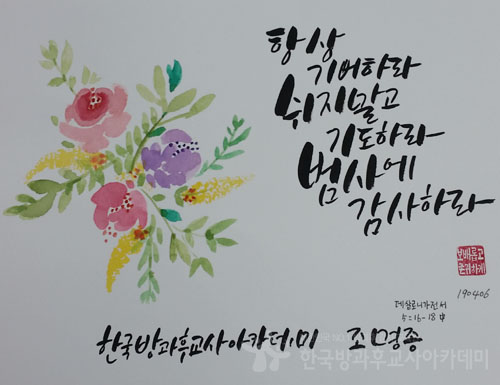 항상
기뻐하라
쉬지말고
기도하라
범사에
감사하라
보배롭고
존귀하게
190406
데살로니가전서
5:16-18 中
한국방과후교사아카데미 조명종
한국방과후교사아카데미